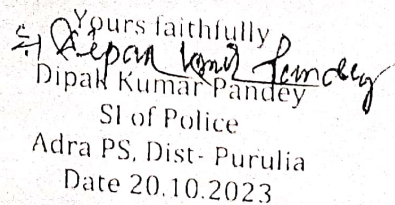 Yours faithfully
Dipak Kumar Pandey
Dipak Kumar Pandey
SI of Police
Adra PS, Dist- Purulia
Date 20.10.2023